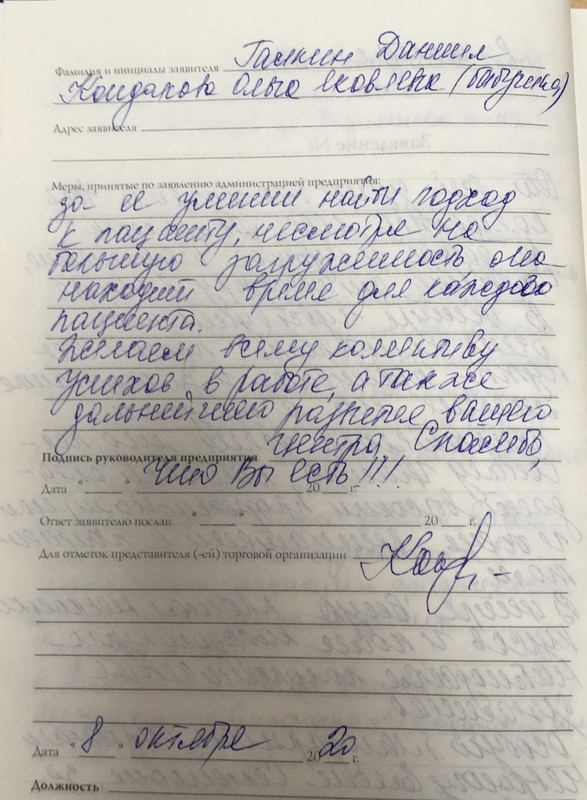 Фамилия и инициалы заявителя Галкин Даниил
Кондакова Ольга Яковлевна (бабушка)
Адрес заявителя
Меры, принятые по заявлению администрацией предприятия:
за ее умении найти подход
к пациенту, несмотря на
большую загруженность, она
находит время для каждого
пациента.
Желаем всему коллективу
успехов в работе, а также
дальнейшего развития вашего
Подпись руководителя предприятия центра. Спасибо,
Дата " " что Вы есть!!! 20 г.
Ответ заявителю послан " " 20 г.
Для отметок представителя (-ей) торговой организации
Дата "8" октября 2020 г.
Должность